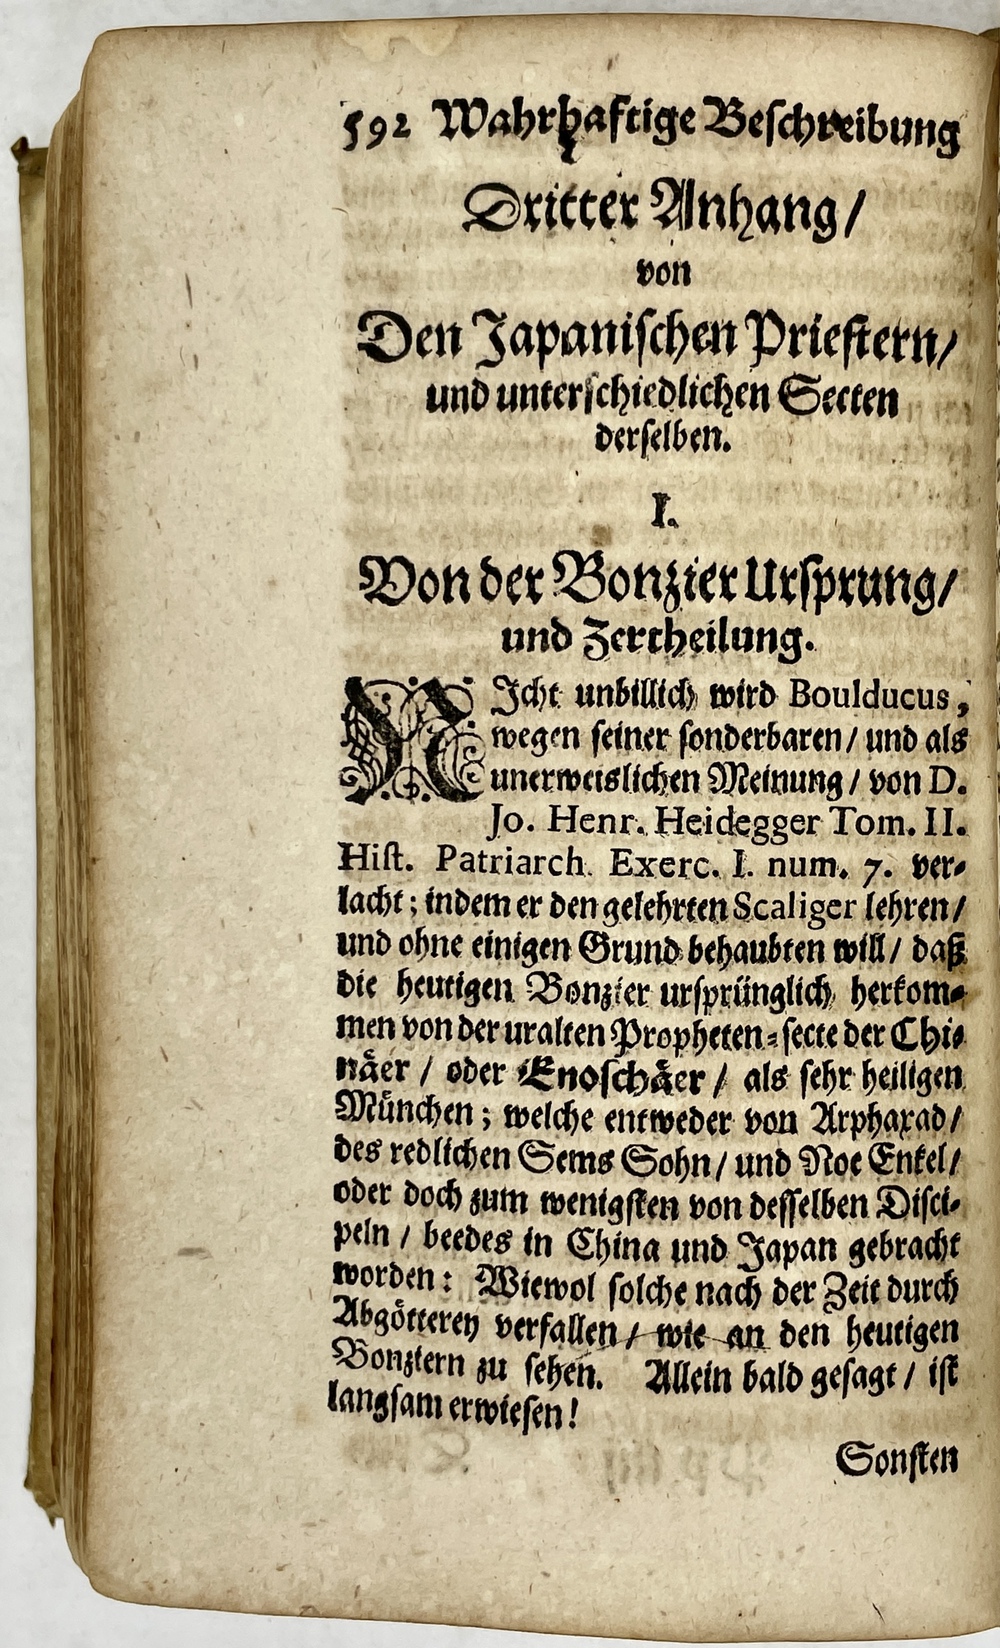 592 Wahrhaftige Beschreibung
Dritter Anhang/
von
Den Japanischen Priestern/
und unterschiedlichen Secten
derselben.
I.
Von der Bonzier Ursprung/
und Zertheilung.
NJcht unbillich wird Boulducus,
wegen seiner sonderbaren / und als
unerweislichen Meinung / von D.
Jo. Henr. Heidegger Tom. II.
Hist. Patriarch. Exerc. I. num. 7. ver-
lacht; indem er den gelehrten Scaliger lehren/
und ohne einigen Grund behaubten will / daß
die heutigen Bonzier ursprünglich herkom-
men von der uralten Propheten-secte der Chi-
näer / oder Enoschäer / als sehr heiligen
München; welche entweder von Arphaxad/
des redlichen Sems Sohn / und Noe Enkel/
oder doch zum wenigsten von desselben Disci-
peln / beedes in China und Japan gebracht
worden: Wiewol solche nach der Zeit durch
Abgötterey verfallen / wie an den heutigen
Bonziern zu sehen. Allein bald gesagt / ist
langsam erwiesen!
Sonsten